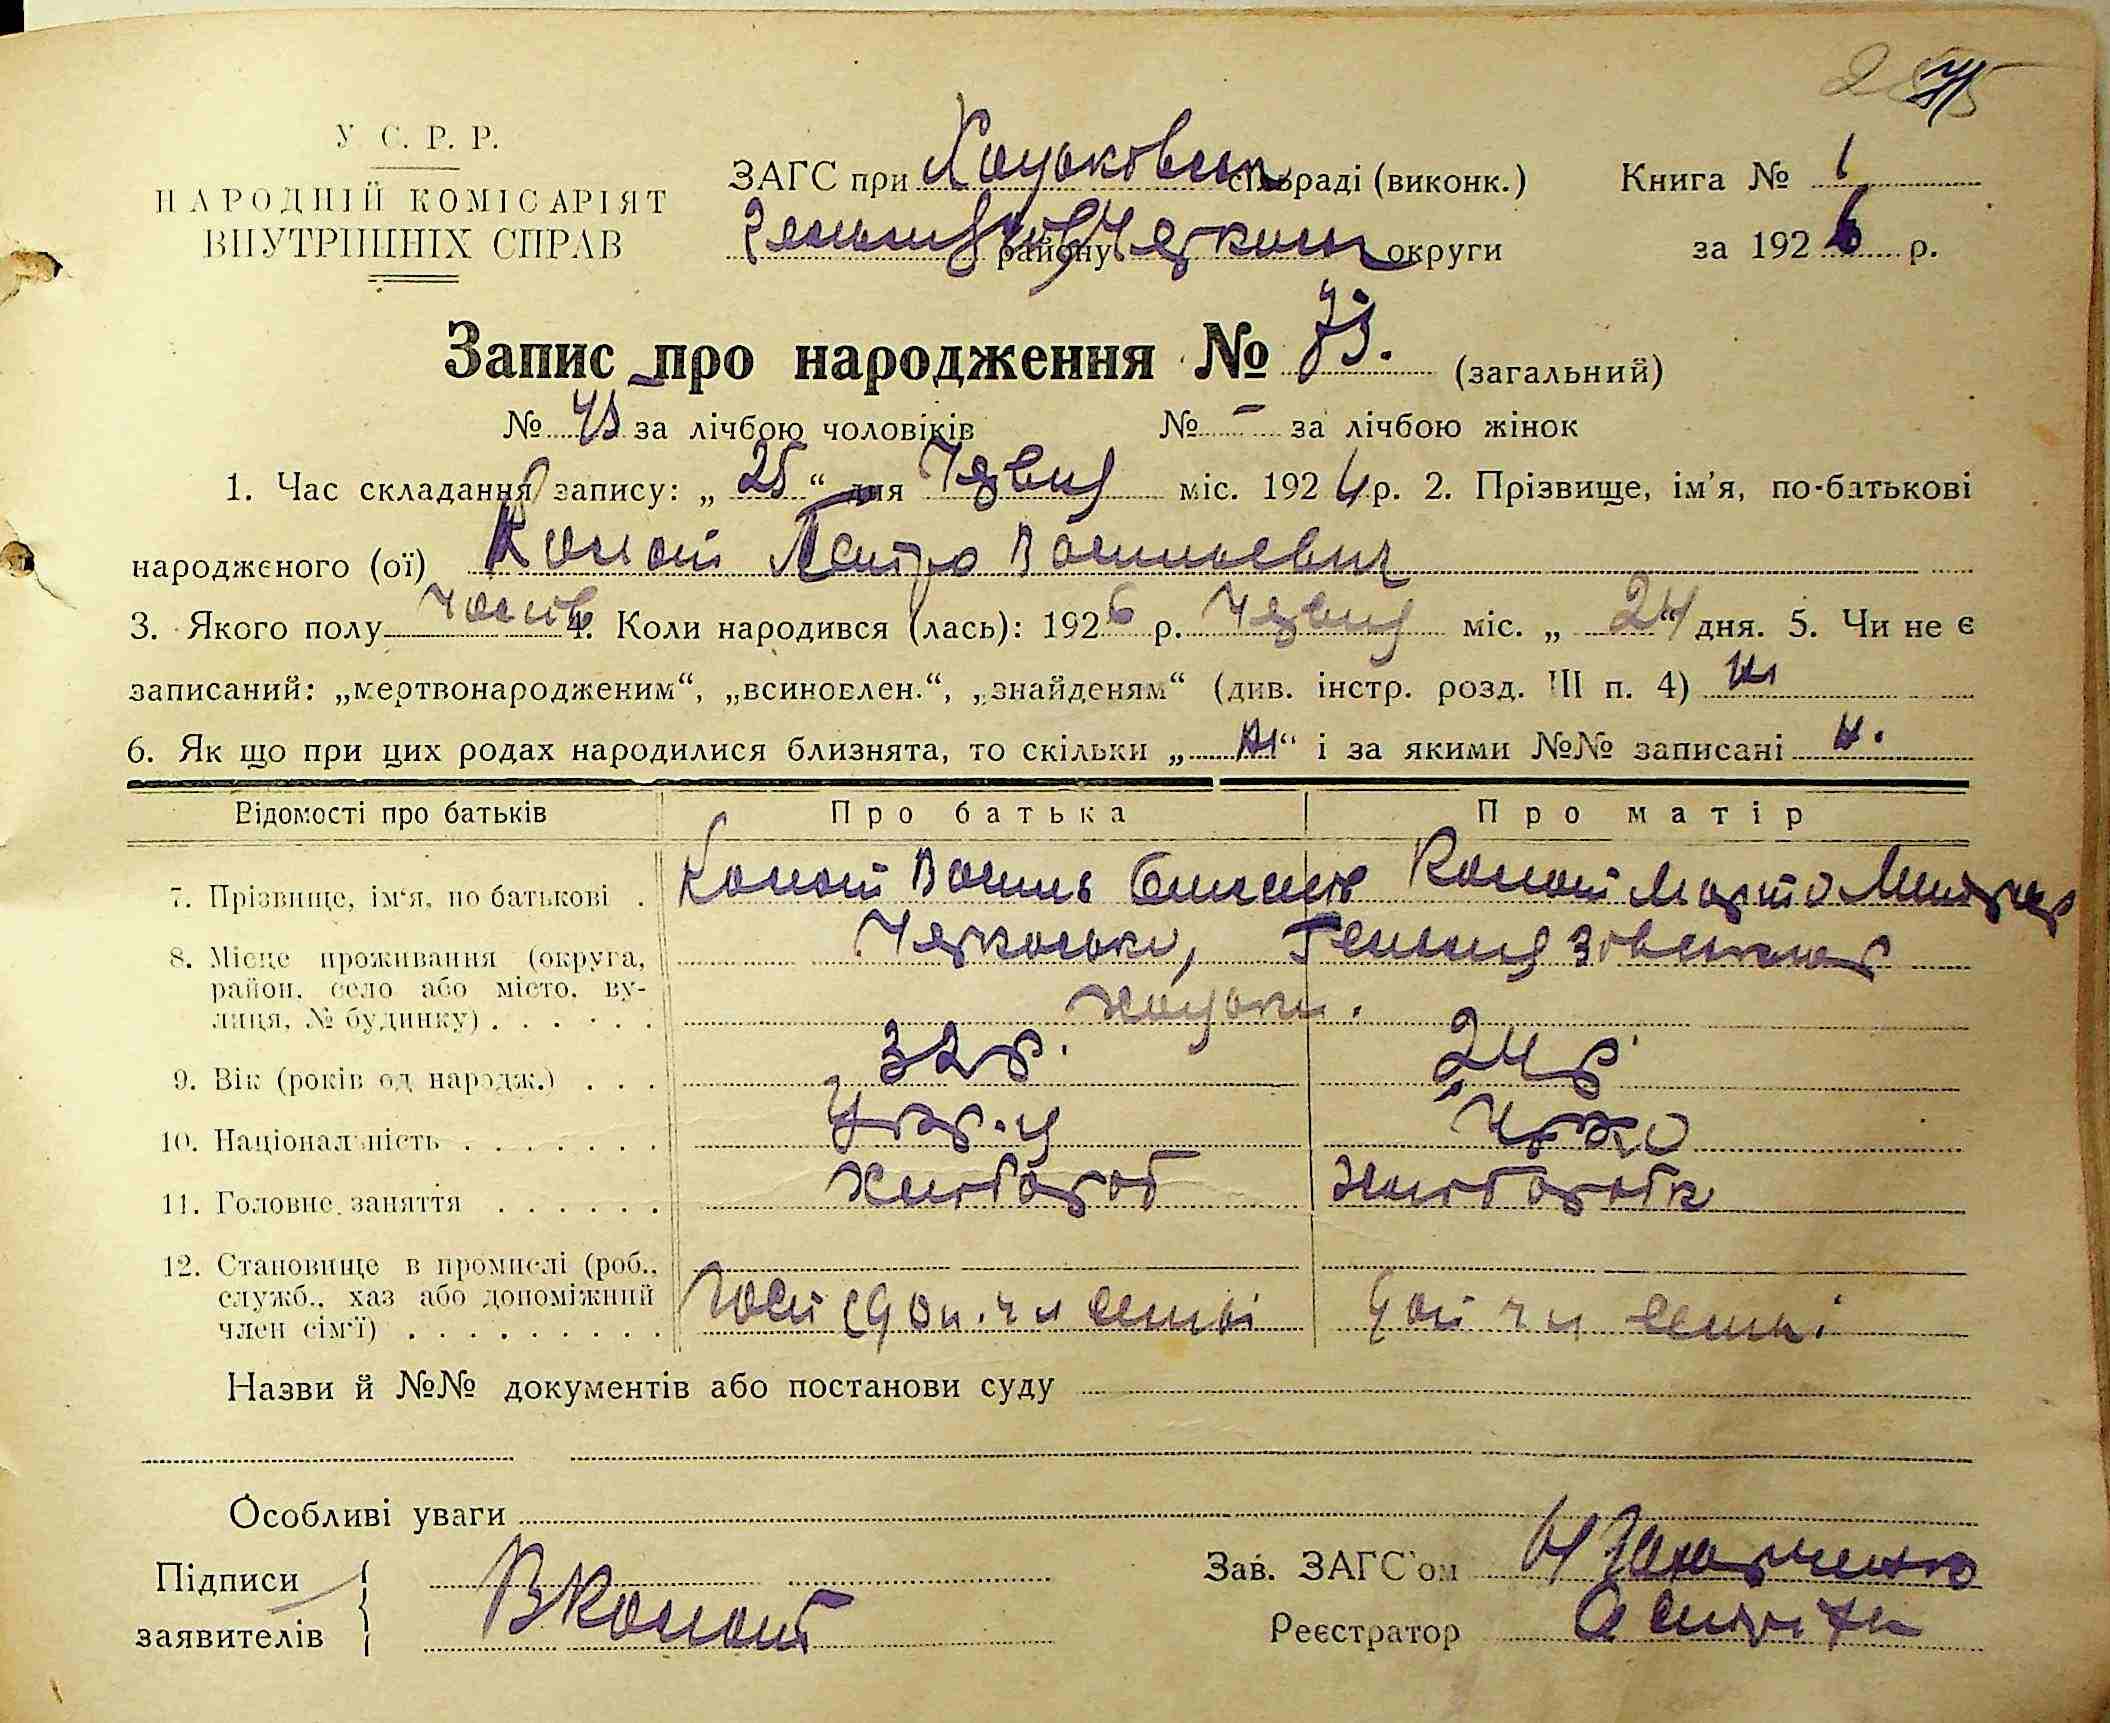 У С. Р. Р.
НАРОДНІЙ КОМІСАРІЯТ
ВНУТРІШНІХ СПРАВ
ЗАГС при Хоцьковск сільраді (виконк.) Книга № 1
району Черкаськ округи за 1926 р.
Запис про народження № 73. (загальний)
№ за лічбою чоловіків № – за лічбою жінок
1. Час складання запису: „ 25 “ дня Червня міс. 192 р. 2. Прізвище, ім'я, по-батькові
народженого (ої) Коност Петро Васильевич
3. Якого полу Чолов 4. Коли народився (лась): 1926 р. Червня міс. „ 24 “ дня. 5. Чи не є
записаний: „мертвонародженим“, „всиновлен.“, „знайденям“ (див. інстр. розд. III п. 4) ні
6. Як що при цих родах народилися близнята, то скільки „ ні “ і за якими №№ записані н.
Відомості про батьків Про батька Про матір
7. Прізвище, ім'я, по батькові . Коност Василь Коност Марта
8. Місце проживання (округа, Черкаська,
район, село або місто, ву-
лиця, № будинку) . . . . . . Хоцьки.
9. Вік (років од народж.) . . . 32 р. 24 р
10. Національність . . . . . . . Укр. Укр
11. Головне заняття . . . . . . Хлібороб Хлібороб
12. Становище в промислі (роб.,
служб., хаз або допоміжний
член сім'ї) . . . . . . . . . доп. чл семьі доп чл семьі
Назви й №№ документів або постанови суду
Особливі уваги
Підписи Зав. ЗАГС'ом
заявителів В Коност Реєстратор